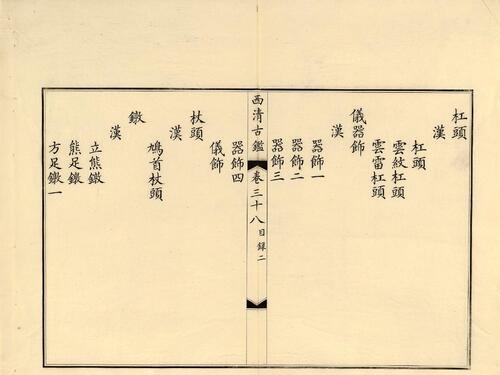 杠頭
漢
杠頭
雲紋杠頭
雲雷杠頭
儀器飾
漢
器飾一
器飾二
器飾三
西清古鑑 卷三十八 目錄二
器飾四
儀飾
杖頭
漢
鳩首杖頭
鐓
漢
立熊鐓
熊足鐓
方足鐓一